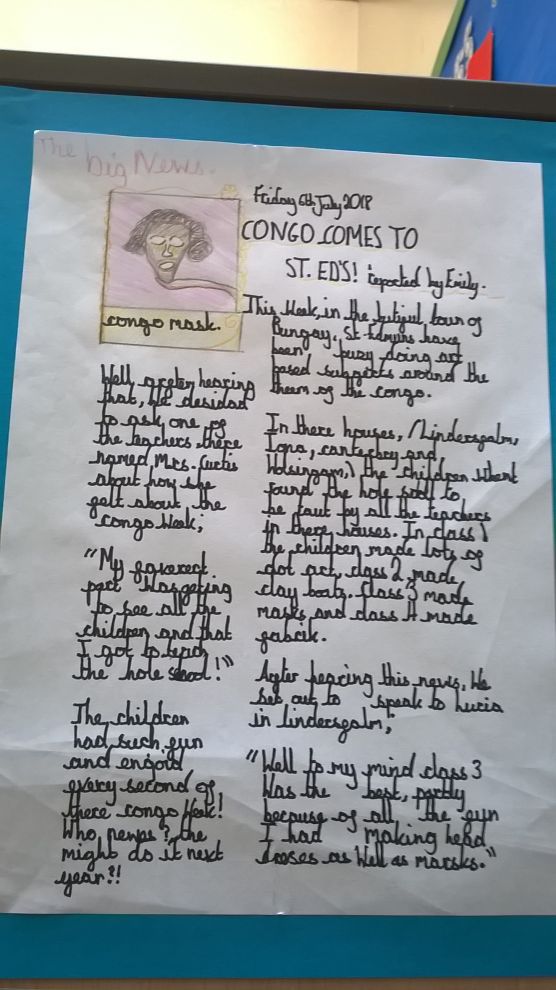 The big News.
Friday 6th July 2018
CONGO COMES TO
ST. ED'S! reported by Emily.
congo mask.
This Week, in the butiful town of
Bungay, St-Edmuns have
been busy doing art
based subjects around the
theem of the congo.
In there houses, (Lindersgalm,
Iona, cantербery and,
Walsingam,) the children Went
round the hole scoll to
be taut by all the teachers
in there houses. In class 1
the children made lots of
dot art, class 2 made
clay boats. Class 3 made
masks and class 4 made
fabrik.
After hearing this news, We
set out to speak to Lucia
in lindersgalm;
"Well to my mind class 3
Was the best, partly
because of all the fun
I had making head
dreses as Well as marsks."
Well, after hearing
that, We desidad
to ask one of
the teachers, there
named Mrs. Curtis
about how she
felt about the
congo Week;
"My faverect
part Was geting
to see all the
children and that
I got to teach
the hole school!"
The children
had such fun
and engoid
every second of
there congo Week!
Who nows? the
might do it next
year?!